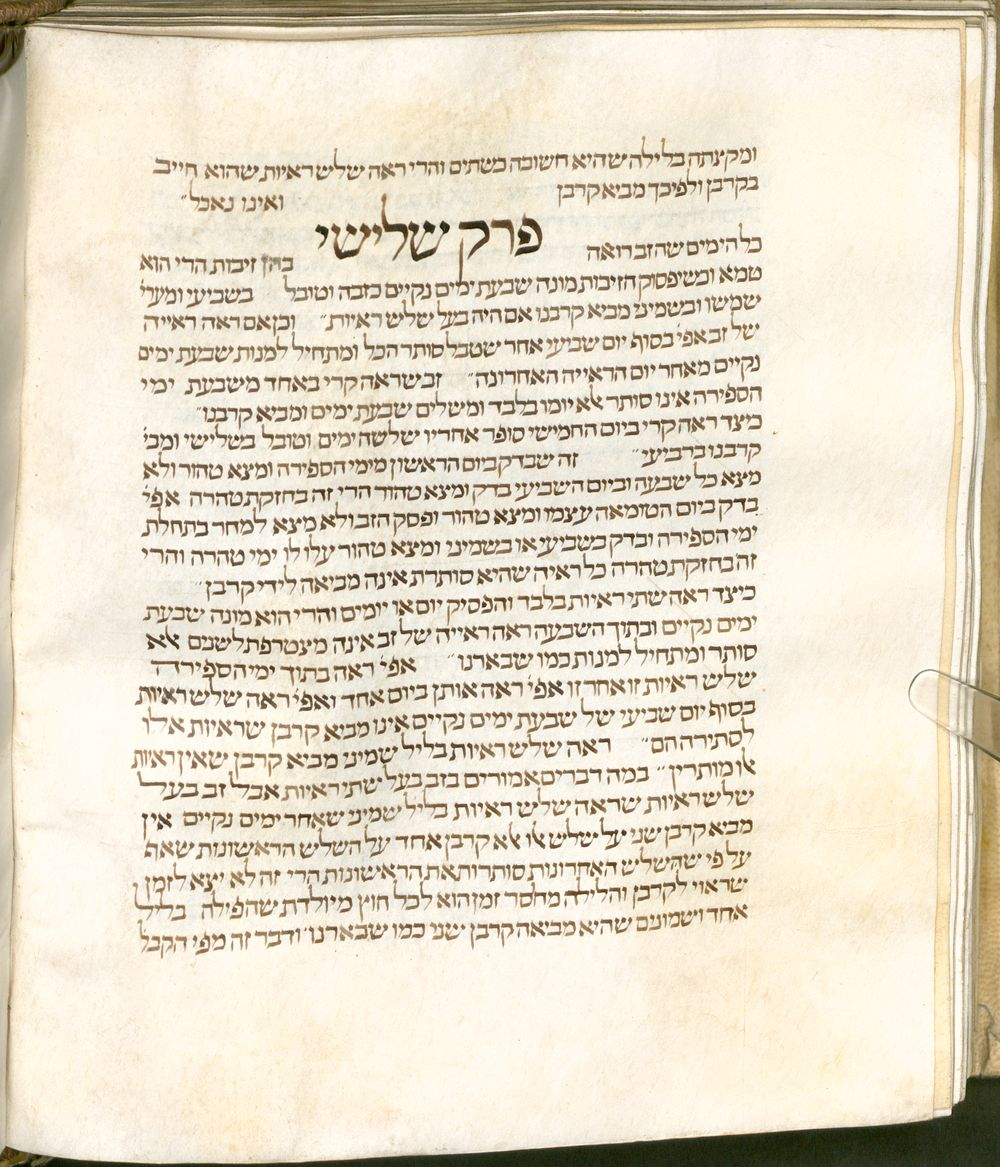 ומקצתה בלילה שהיא חשובה כשתים והרי ראה שלש ראיות שהוא חייב
בקרבן ולפיכך מביא קרבן ואינו נאכל״
פרק שלישי
כל הימים שהזב רואה בהן זיבות הרי הוא
טמא וכשיפסוק הזיבות מונה שבעת ימים נקיים כזבה וטובל בשביעי ומערי׳
שמשו ובשמיני מביא קרבנו אם היה בעל שלש ראיות״ וכן אם ראה ראייה
של זב אפי׳ בסוף יום שביעי אחר שטבל סותר הכל ומתחיל למנות שבעת ימים
נקיים מאחר יום הראייה האחרונה״ זב שראה קרי באחד משבעת ימי
הספירה אינו סותר אלא יומו בלבד ומשלים שבעת ימים ומביא קרבנו״
כיצד ראה קרי ביום החמישי סופר אחריו שלשה ימים וטובל בשלישי ומבי׳
קרבנו ברביעי״ זה שבדק ביום הראשון מימי הספירה ומצא טהור ולא
מצא כל שבעה וביום השביעי בדק ומצא טהור הרי זה בחזקת טהרה אפי׳
בדק ביום הטומאה עצמו ומצא טהור ופסק הזב ולא מצא למחר בתחלת
ימי הספירה ובדק בשביעי או בשמיני ומצא טהור עלו לו ימי טהרה והרי
זה בחזקת טהרה כל ראיה שהיא סותרת אינה מביאה לידי קרבן״
כיצד ראה שתי ראיות בלבד והפסיק יום או יומים והרי הוא מונה שבעת
ימים נקיים ובתוך השבעה ראה ראייה של זב אינה מצטרפת לשנים אלא
סותר ומתחיל למנות כמו שבארנו״ אפי׳ ראה בתוך ימי הספירה
שלש ראיות זו אחר זו אפי׳ ראה אותן ביום אחד ואפי׳ ראה שלש ראיות
בסוף יום שביעי של שבעת ימים נקיים אינו מביא קרבן שראיות אלו
לסתירה הם״ ראה שלש ראיות בליל שמיני מביא קרבן שאין ראיות
אלו מותרין״ במה דברים אמורים בזב בעל שתי ראיות אבל זב בעל
שלש ראיות שראה שלש ראיות בליל שמיני שאחר ימים נקיים אין
מביא קרבן שני על שלש אלו אלא קרבן אחד על השלש הראשונות שאף
על פי שהשלש האחרונות סותרות את הראשונות הרי זה לא יצא לזמן
שראוי לקרבן והלילה מחסר זמן הוא לכל חוץ מיולדת שהפילה בליל
אחד ושמונים שהיא מביאה קרבן שני כמו שבארנו ודבר זה מפי הקבל